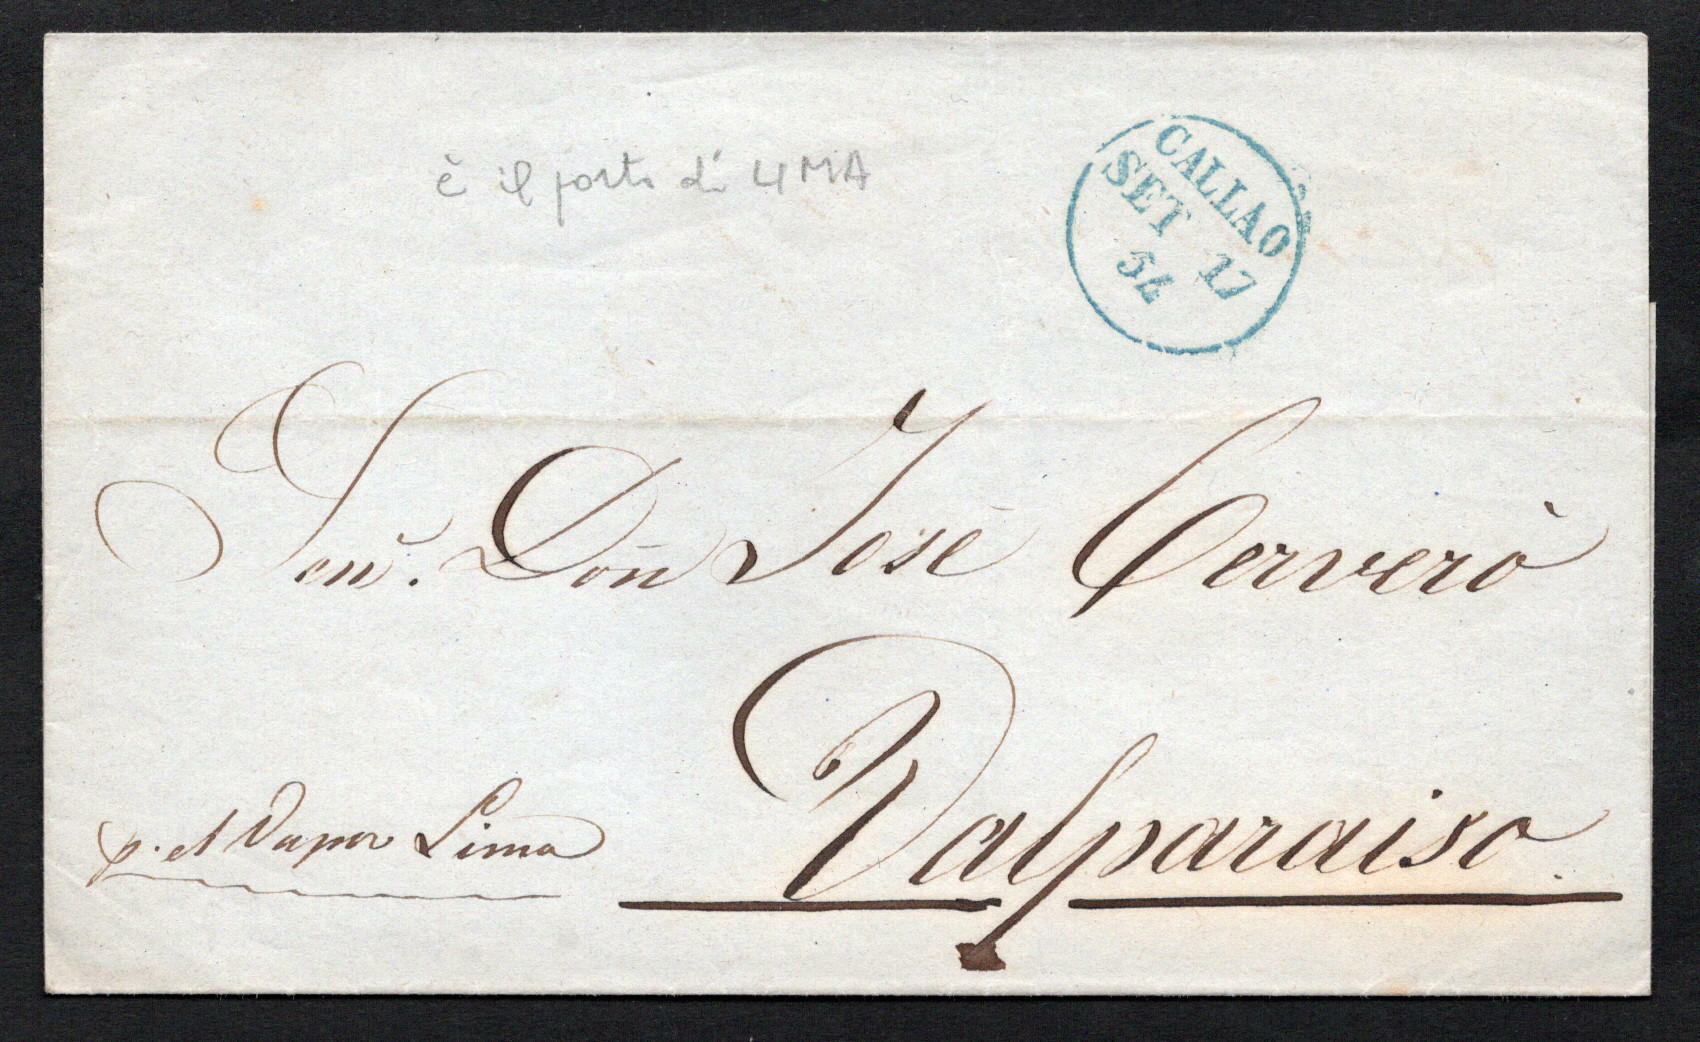 è il porto di LIMA
CALLAO
SET 17
54
Señr. Don José Cerveró
Valparaiso.
p. el Vapor Lima